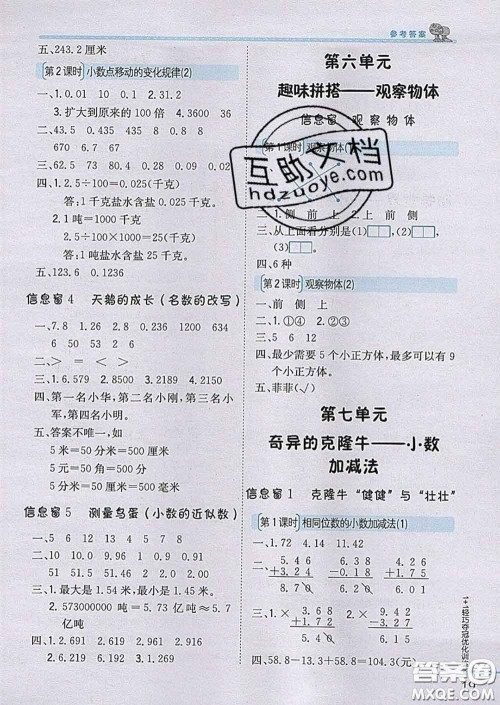 参考答案
五、243.2 厘米
第2课时 小数点移动的变化规律(2)
一、1.0.01 10 2.0.1 3.1.2
3.扩大到原来的100倍 4.3600 36
二、43.2 0.435 8.38 0.038
670 6.7 8.67 86.7
三、62.5 0.79 0.8 0.483
四、1.2.5÷100=0.025(千克)
答:1千克盐水含盐 0.025千克。
2.1吨=1000千克
2.5÷100×1000=25(千克)
答:1吨盐水含盐25千克。
五、123.6 0.1236
信息窗 4 天鹅的成长(名数的改写)
一、7.8 1.28 3.6 2.8 9.6 9.9
二、> = < =
三、1.6.579 2.8700 3.2.189 4.6.210
四、第一名小华,第二名小刚,第三名小英,
第四名小明。
五、答案不唯一,如
5米=50分米=500厘米
5元=50角=500分
5米=50分米=500厘米
信息窗 5 测量鸟蛋(小数的近似数)
一、5 6 12 13 4 7 7 8
二、51 51.5 0.8 0.84 2 2.0
三、1.最大是1.54。最小是1.45。
2.573000000吨=5.73亿吨≈5.7
亿吨
四、1.1.269 2.1.629 0.921 9.621
2.6.192 3.1.269 4.9.621
第六单元
趣味拼搭——观察物体
信息窗 观察物体
第1课时 观察物体(1)
一、1.侧 前 上 2.上 前 侧
三、从上面看分别是(1)□□,(2)□□,
(3)□□。
四、6种
第2课时 观察物体(2)
一、前 侧 上
二、1.①④ 2.①③④
三、5 6 12
四、最少需要5个小正方体,最多可以有9
个小正方体。
五、菲菲(√)
第七单元
奇异的克隆牛——小数
加减法
信息窗 1 克隆牛“健健”与“壮壮”
第1课时 相同位数的小数加减法(1)
一、1.72 4.14 11.42
二、 5.46 3.58 2.86
+3.24 -0.18 +4.14
8.70 3.40 7.00
三、1.× 3.68 2.× 6.98
+3.22 -3.98
6.90 3.00
四、58.8-13.3+58.8=104.3(元)
1+1轻巧夺冠优化训练
互助文档
hdzuoye.com
答案圈
MXQE.COM